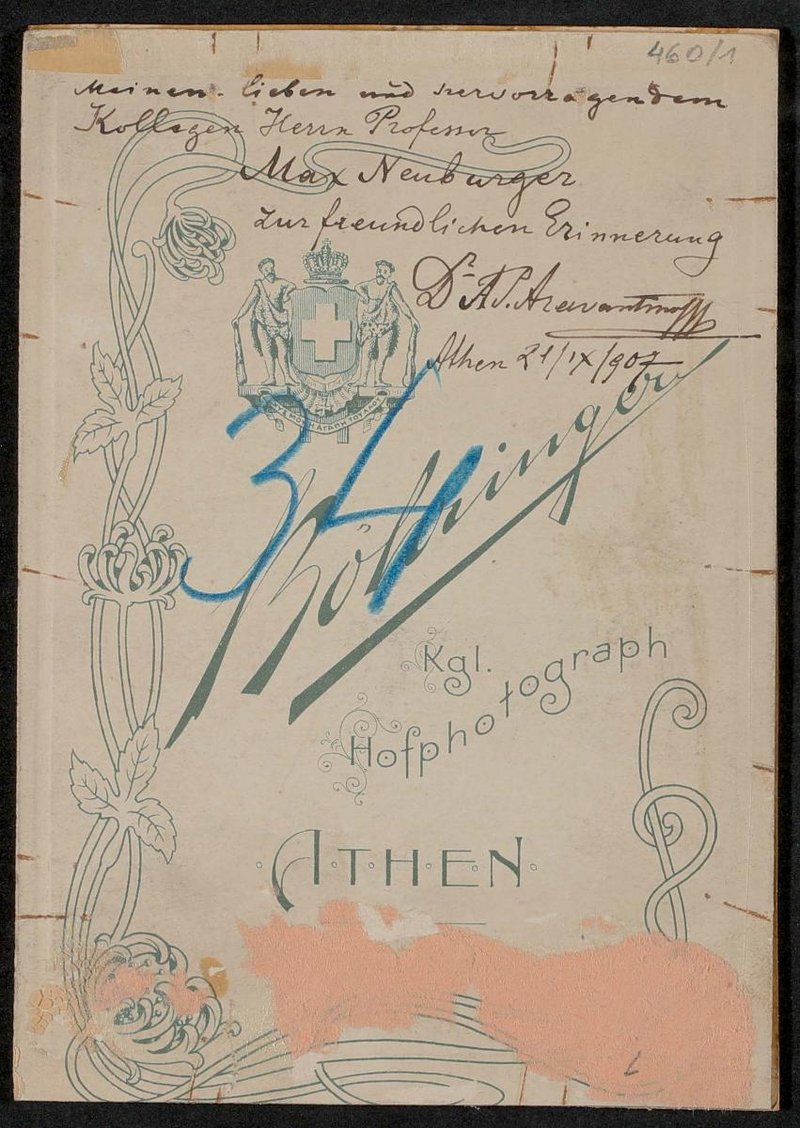 460/1
Meinen lieben und hervorragendem
Kollegen Herrn Professor
Max Neuburger
zur freundlichen Erinnerung
Dr A.P. Aravantinoss
Athen 21/IX/907
ΙΣΧΥΣ ΜΟΥ Η ΑΓΑΠΗ ΤΟΥ ΛΑΟΥ
34
Böhringer
Kgl.
Hofphotograph
ATHEN